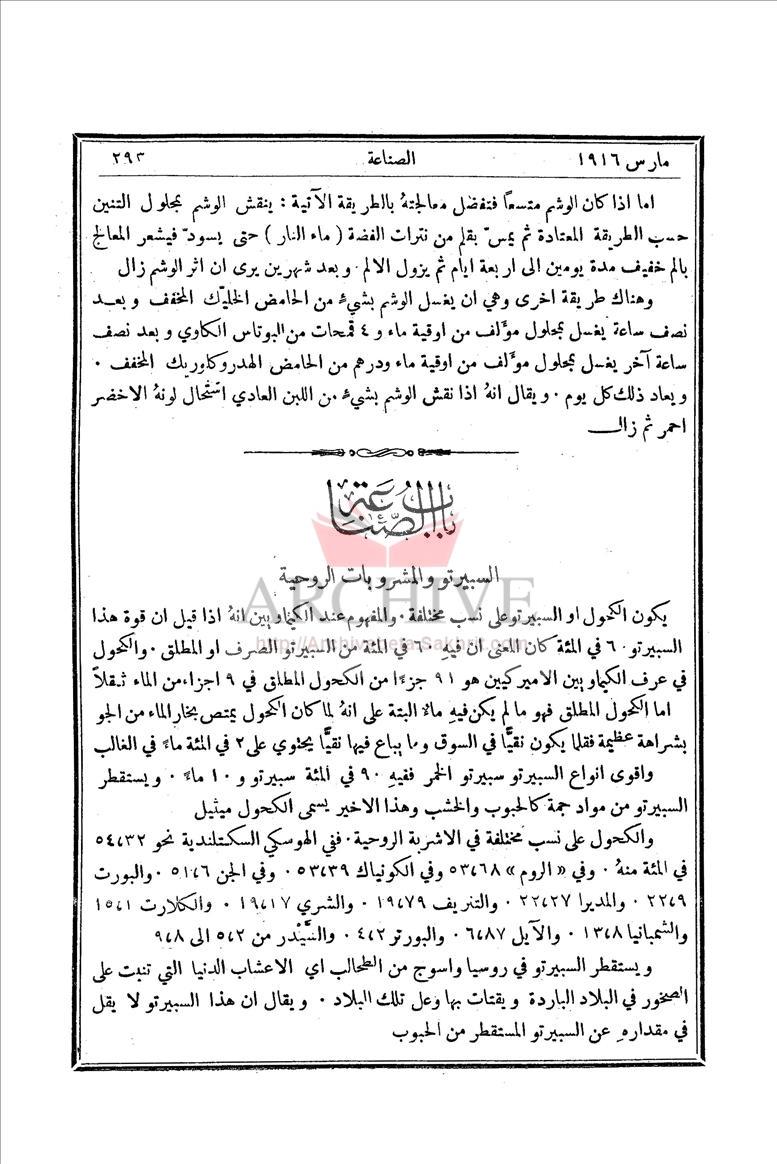 مارس ١٩١٦ الصناعة ٢٩٣
اما اذا كان الوشم متسعاً فتفضل معالجتهُ بالطريقة الآتية : ينقش الوشم بمحلول التنين
حسب الطريقة المعتادة ثم يمسّ بقلم من نترات الفضة ( ماء النار ) حتى يسودّ فيشعر المعالج
بالم خفيف مدة يومين الى اربعة ايام ثم يزول الالم . وبعد شهرين يرى ان اثر الوشم زال
وهناك طريقة اخرى وهي ان يغسل الوشم بشيءٍ من الحامض الخليك المخفف وبعد
نصف ساعة يغسل بمحلول مؤلف من اوقية ماء و٤ قمحات من البوتاس الكاوي وبعد نصف
ساعة آخر يغسل بمحلول مؤلف من اوقية ماء ودرهم من الحامض الهدروكلوريك المخفف .
ويعاد ذلك كل يوم . ويقال انهُ اذا نقش الوشم بشيءٍ من اللبن العادي استحال لونهُ الاخضر
احمر ثم زال
باب الصناعة
السبيرتو والمشروبات الروحية
ARCHIVE
http://Archivebeta.Sakhrit.com
يكون الكحول او السبيرتو على نسب مختلفة . والمفهوم عند الكيماويين انهُ اذا قيل ان قوة هذا
السبيرتو ٦٠ في المئة كان المعنى ان فيهِ ٦٠ في المئة من السبيرتو الصرف او المطلق . والكحول
في عرف الكيماويين الاميركيين هو ٩١ جزءًا من الكحول المطلق في ٩ اجزاء من الماء ثقلاً
اما الكحول المطلق فهو ما لم يكن فيهِ ماءٌ البتة على انهُ لما كان الكحول يمتص بخار الماء من الجو
بشراهة عظيمة فقلما يكون نقيًّا في السوق وما يباع فيها نقيًّا يحتوي على ٢ في المئة ماءً في الغالب
واقوى انواع السبيرتو سبيرتو الخمر ففيهِ ٩٠ في المئة سبيرتو و ١٠ ماءً . ويستقطر
السبيرتو من مواد جمة كالحبوب والخشب وهذا الاخير يسمى الكحول ميثيل
والكحول على نسب مختلفة في الاشربة الروحية . ففي الهوسكي السكتلندية نحو ٥٤٫٣٢
في المئة منهُ . وفي « الروم » ٥٣٫٦٨ وفي الكونياك ٥٣٫٣٩ . وفي الجن ٥١٫٦ . والبورت
٢٢٫٩ . والمديرا ٢٢٫٢٧ . والتنريف ١٩٫٧٩ . والشري ١٩٫١٧ . والكلارت ١٥٫١
والشمبانيا ١٣٫٨ . والآيل ٦٫٨٧ . والبورتر ٤٫٢ . والسَّيْدر من ٥٫٢ الى ٩٫٨
ويستقطر السبيرتو في روسيا واسوج من الطحالب اي الاعشاب الدنيا التي تنبت على
الصخور في البلاد الباردة ويقتات بها وعل تلك البلاد . ويقال ان هذا السبيرتو لا يقل
في مقدارهِ عن السبيرتو المستقطر من الحبوب